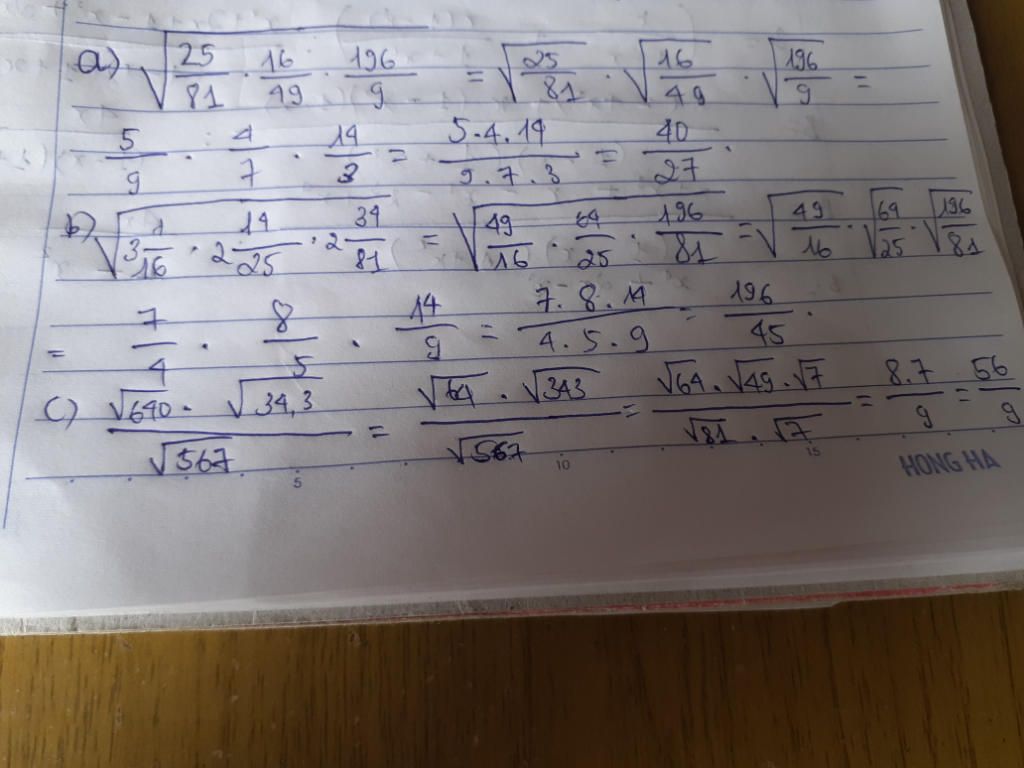 a) √(25/81 · 16/49 · 196/9) = √(25/81) · √(16/49) · √(196/9) =
5/9 · 4/7 · 14/3 = (5.4.14)/(9.7.3) = 40/27.
b) √(3 1/16 · 2 14/25 · 2 34/81) = √(49/16 · 64/25 · 196/81) = √(49/16) · √(64/25) · √(196/81)
= 7/4 · 8/5 · 14/9 = (7.8.14)/(4.5.9) = 196/45.
c) (√640 · √34,3)/√567 = (√64 · √343)/√567 = (√64 · √49 · √7)/(√81 · √7) = 8.7/9 = 56/9
5 10 15
HONG HA